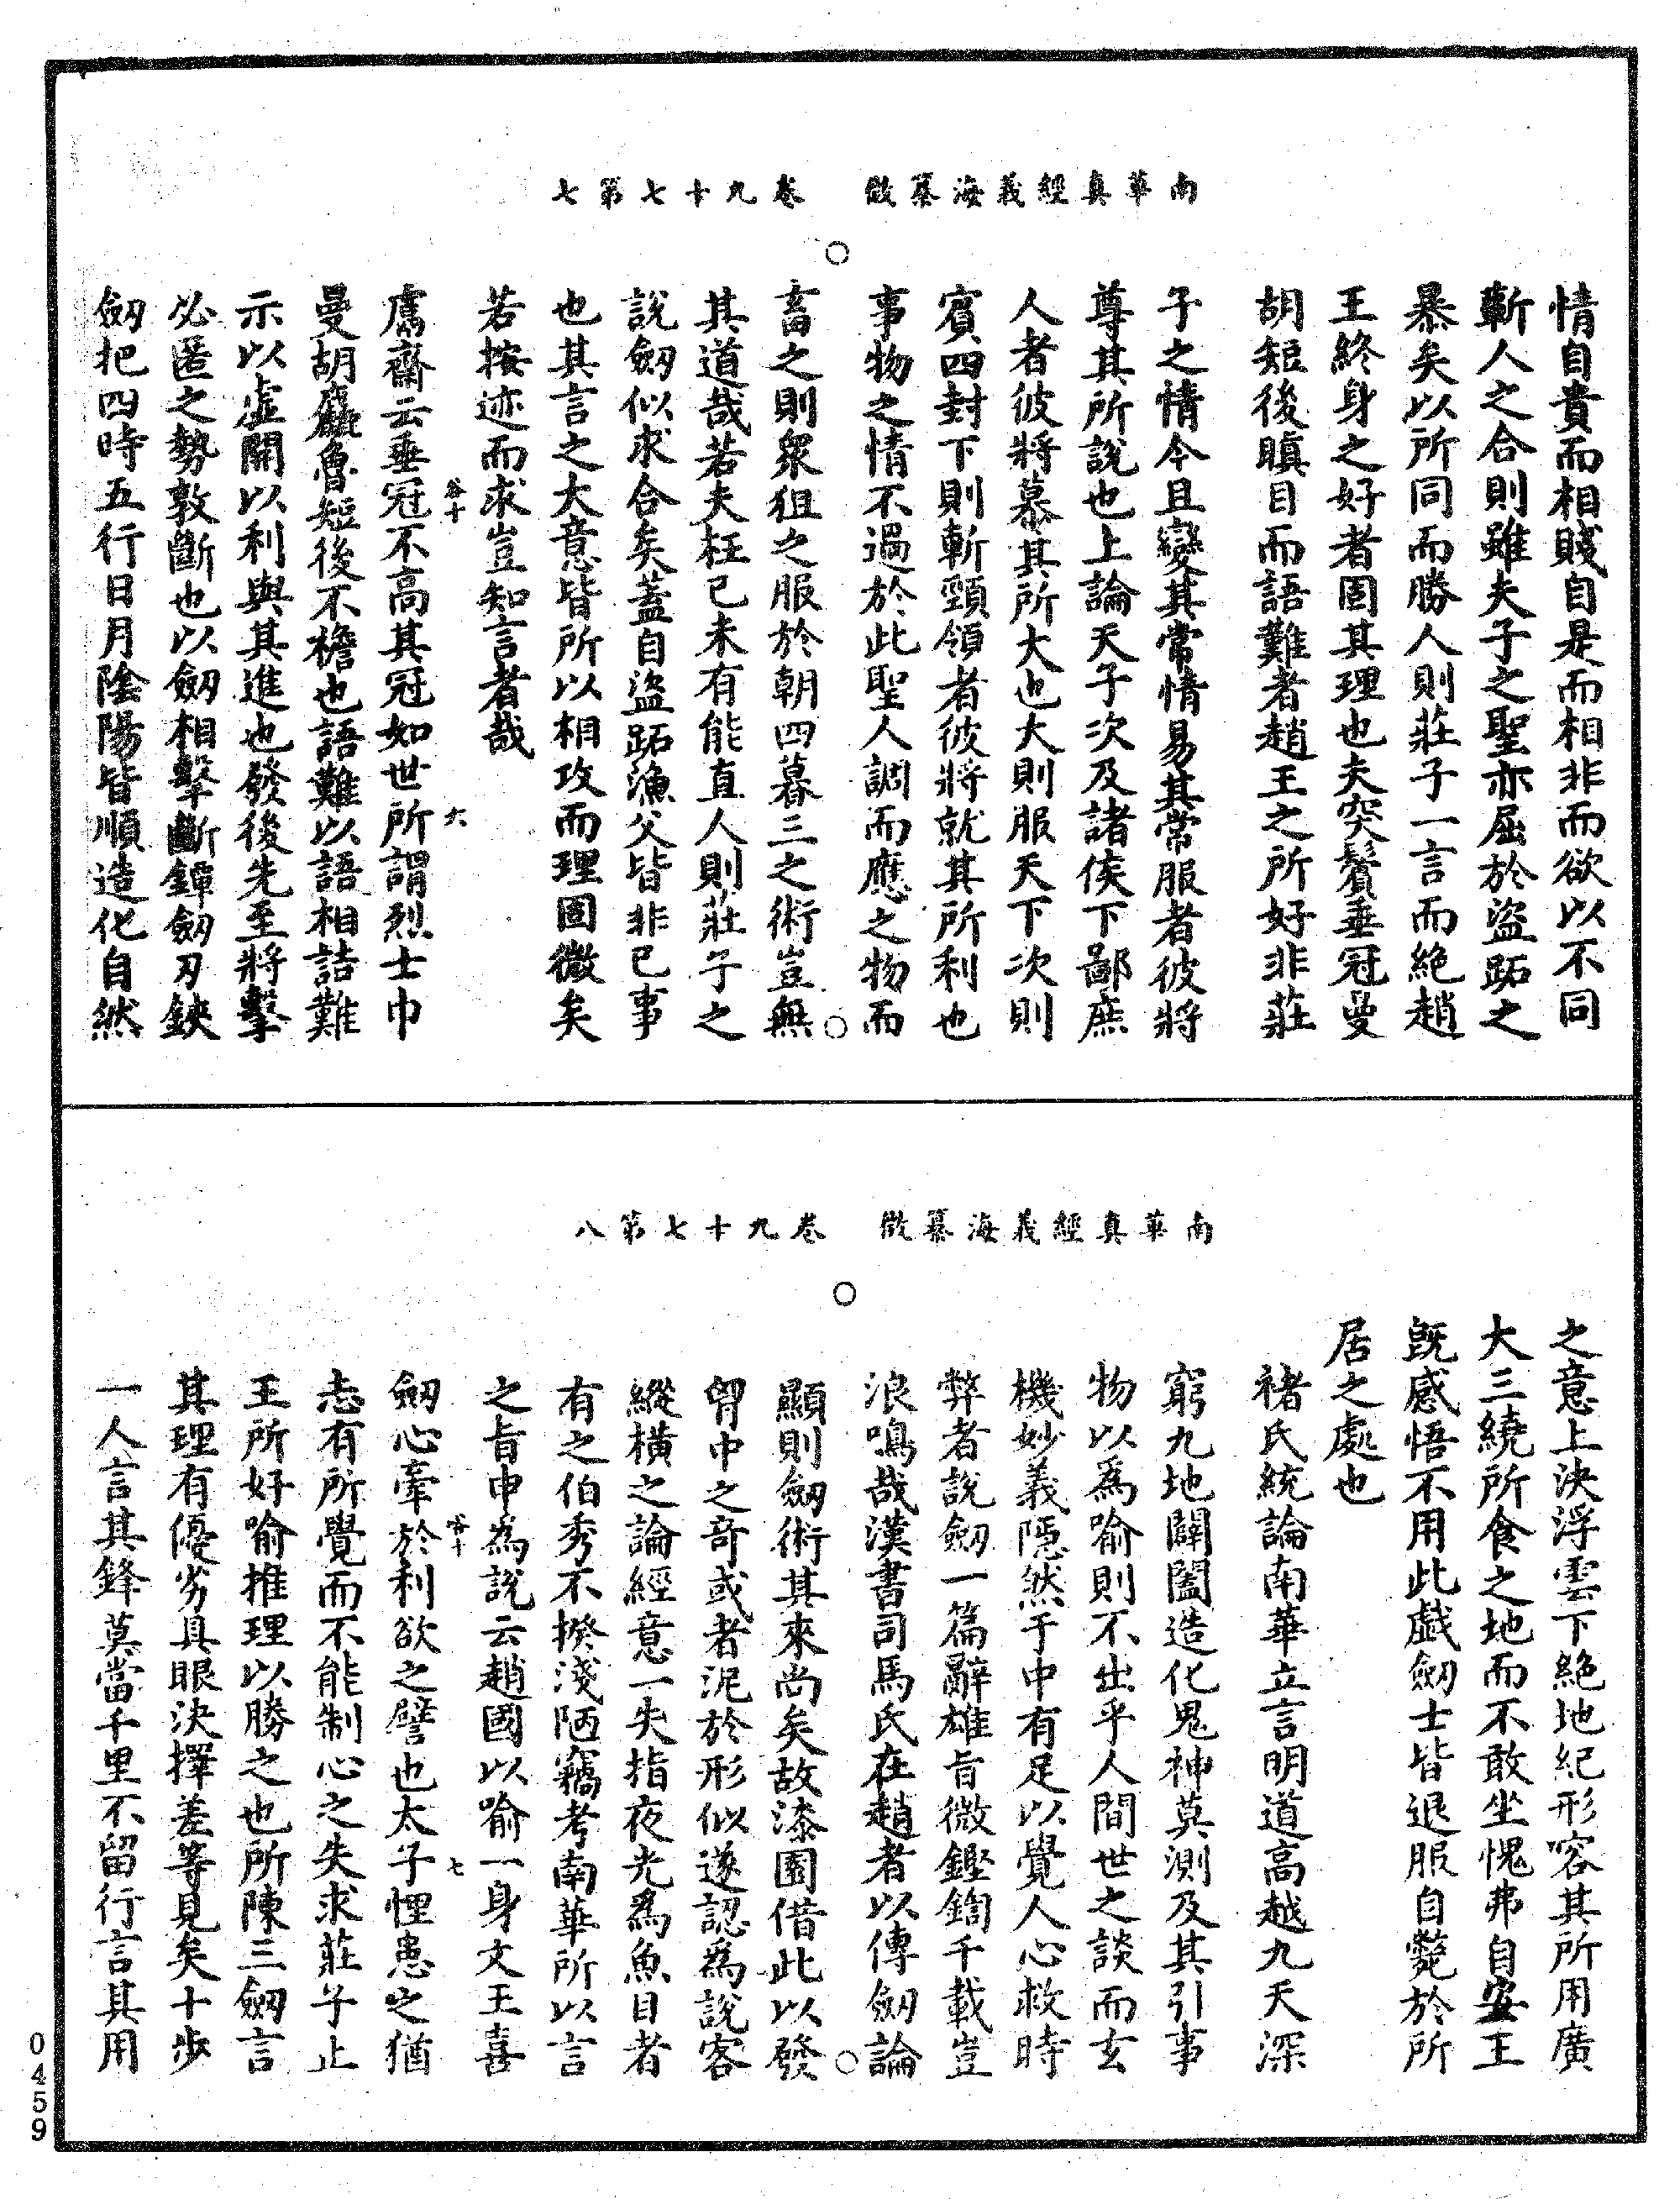 南華真經義海纂微　卷九十七第七
情自貴而相賤自是而相非而欲以不同
蘄人之合則雖夫子之聖亦屈於盜跖之
暴矣以所同而勝人則莊子一言而絶趙
王終身之好者固其理也夫突鬢垂冠曼
胡短後瞋目而語難者趙王之所好非莊
子之情今且變其常情易其常服者彼將
尊其所說也上論天子次及諸侯下鄙庶
人者彼將慕其所大也大則服天下次則
賓四封下則斬頸領者彼將就其所利也
事物之情不過於此聖人調而應之物而
畜之則衆狙之服於朝四暮三之術豈無
其道哉若夫枉已未有能直人則莊子之
說劒似求合矣蓋自盜跖漁父皆非已事
也其言之大意皆所以相攻而理固微矣
若按迹而求豈知言者哉
鬳齋云垂冠不高其冠如世所謂烈士巾
谷十
六
曼胡麤魯短後不襜也語難以語相詰難
示以虛開以利與其進也發後先至將擊
必匿之勢敦斷也以劒相擊斷鐔劒刃鋏
劒把四時五行日月陰陽皆順造化自然
南華真經義海纂微　卷九十七第八
之意上決浮雲下絶地紀形容其所用廣
大三繞所食之地而不敢坐愧弗自安王
旣感悟不用此戲劒士皆退服自斃於所
居之處也
褚氏統論南華立言明道高越九天深
窮九地闢闔造化鬼神莫測及其引事
物以爲喻則不出乎人間世之談而玄
機妙義隱然于中有足以覺人心救時
弊者說劒一篇辭雄旨微鏗鍧千載豈
浪鳴哉漢書司馬氏在趙者以傳劒論
顯則劒術其來尚矣故漆園借此以發
胷中之奇或者泥於形似遂認爲說客
縱橫之論經意一失指夜光爲魚目者
有之伯秀不揆淺陋竊考南華所以言
之旨申爲說云趙國以喻一身文王喜
劒心牽於利欲之譬也太子悝患之猶
谷十
七
志有所覺而不能制心之失求莊子止
王所好喻推理以勝之也所陳三劒言
其理有優劣具眼決擇差等見矣十步
一人言其鋒莫當千里不留行言其用
0459